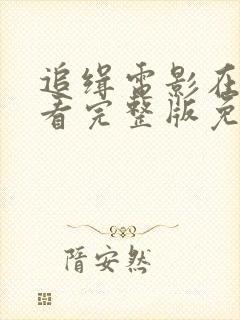 追缉电影在
看完整版免
隋安然